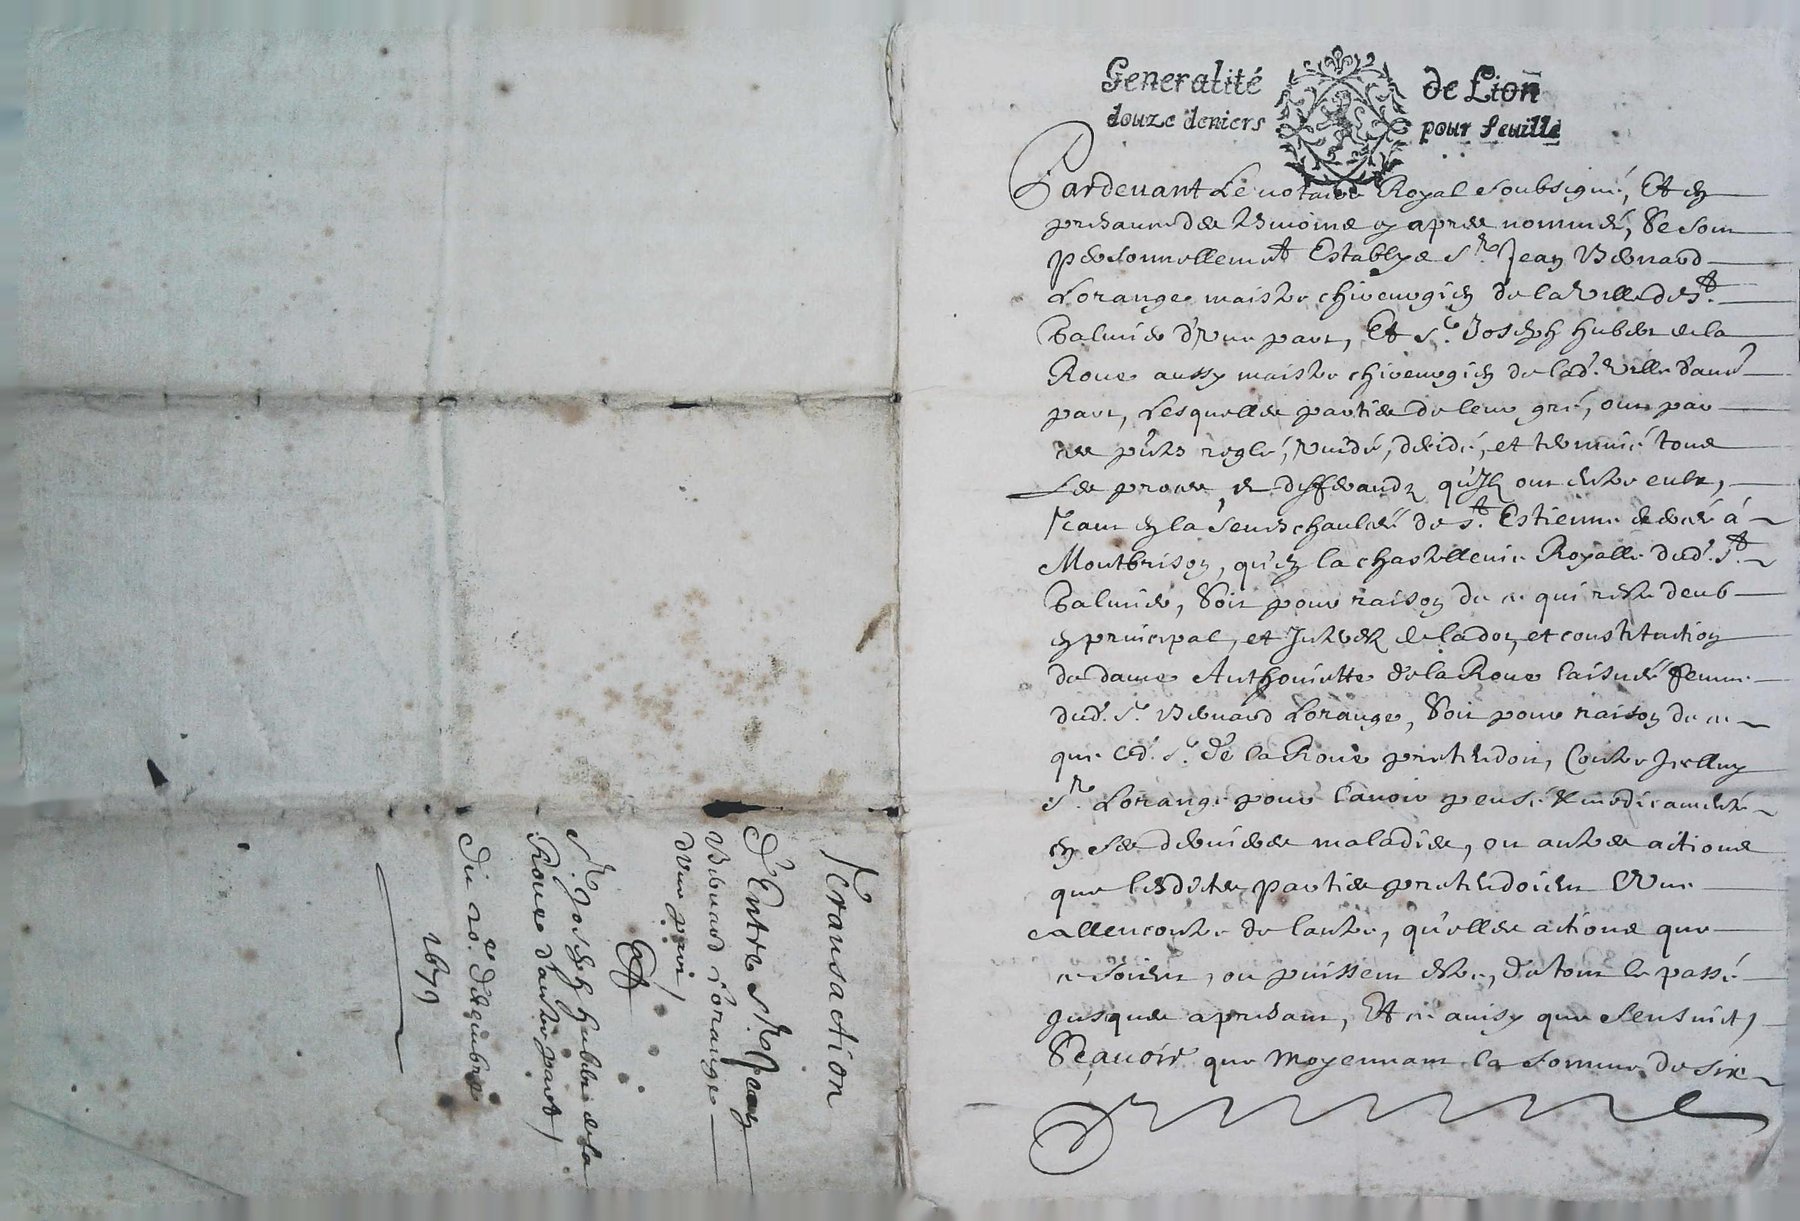 Generalité de Lion
douze deniers pour feuille
Pardevant Le notaire Royal soubsigné, Et en
presance des tesmoins cy apres nommés, Se sont
personnellement Establys Sr. Jean Bernard
Lorange maistre chirurgien de la Ville de St.
Galmier d'Une part, Et Sr. Joseph hubert de la
Roue aussy maistre chirurgien de lad. Ville d'autre
part, Lesquelles parties de leur gré, ont par
ces pntes reglé, vuidé, decidé, et terminé tous
Les proces et differands qu'ils ont entre eulx,
tant en la Seneschaulcée de St. Estienne à
Montbrison, qu'en la chastellenie Royalle dud. St.
Galmier, Soit pour raison de ce qui reste deub
en principal, et Interestz de la dot, et constitution
de dame Anthoinette de la Roue laisnée femme
dud. Sr. Bernard Lorange, Soit pour raison de ce
que led. Sr. de la Roue pretendoit, Contre Icelluy
Sr. Lorange pour l'avoir pensé et medicamenté
en ses dernieres maladies, ou autres actions
que lesdites parties pretendoient l'Une
allencontre de lautre, quelles actions que
ce soient, ou puissent estre, de tout le passé
jusques a presant, Et ce ainsy que s'ensuit,
Sçavoir que moyennant la somme de six
Transaction
D'Entre Sr. Jean
Bernard Lorange
d'Une part,
Et
Sr. Joseph hubert de la
Roue d'autre part,
Du 20e. decembre
1679